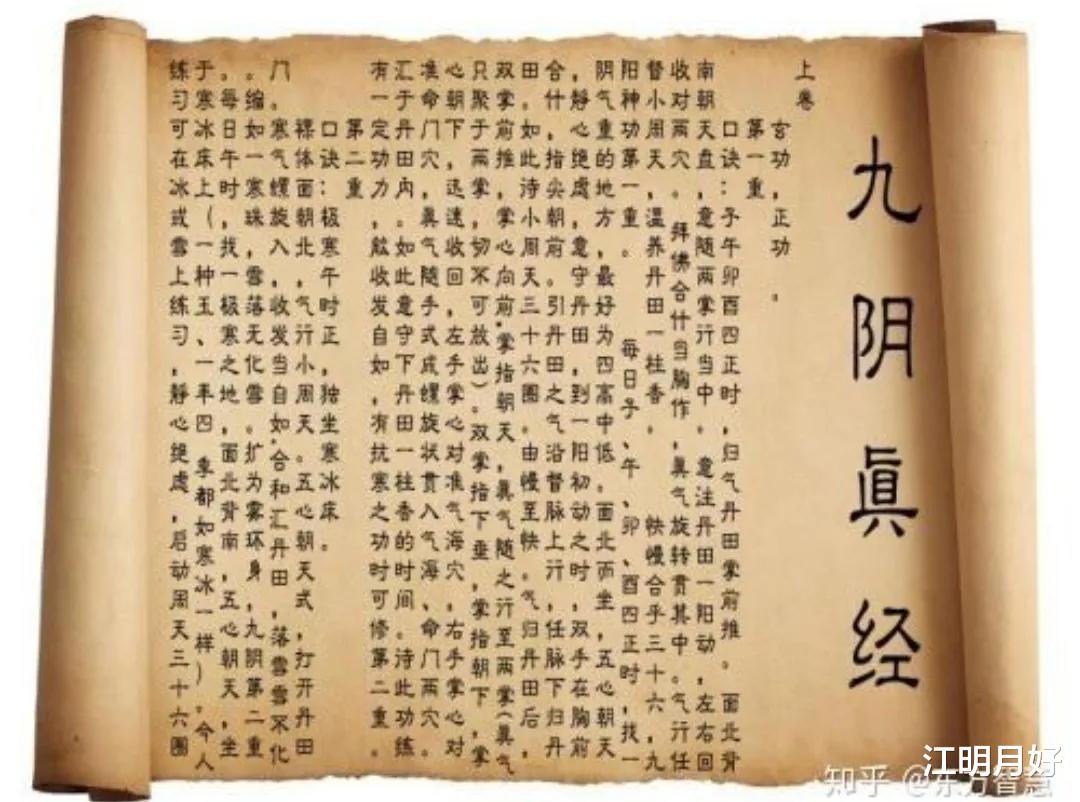 九阴眞经
上卷
玄功，正功。
第一重，
口诀：子午卯酉四正时，归气丹田掌前推。面北背
南朝天盘，意随两掌行当中。意注丹田一阳动，左右回
收对两穴。拜佛合什当胸作，眞气旋转贯其中。气行任
督小周天，温养丹田一柱香。快慢合乎三十六，九
阳神功第一重。每日子、午、卯、酉四正时，找一
阴气重的地方，最好为四高中低。面北而坐，五心朝天
，静心绝虑，意守丹田，到一阳初动之时，双手在胸前
合什，指尖朝前。引丹田之气沿督脉上行，任脉下归丹
田，如此待小周天三十六圈。由慢至快。气归丹田后，
双掌前推，掌心向前，掌指朝天，眞气随之行至两掌（眞气
只聚于两掌，切不可放出）。双掌指下垂，掌指朝下，掌
心朝下，迅速收回，左手掌心对准气海穴，右手掌心对
准命门穴，眞气随手式成螺旋状贯入气海、命门两穴。
汇于丹田内。如此意守下丹田一柱香的时间。待此功练
有一定功力，能收发自如，有抗寒之功时可修第二重。
第二重
口诀：极寒午时正，独坐寒冰床。
裸体面朝北，气行小周天。五心朝天式，打开丹田
门。寒气螺旋入，收发当自如。合和汇丹田，落雪雪不化
。缩如一寒珠，雪落无化雪。扩为雾环身，九阴第二重
。每日午时，找一极寒之地，面北背南，五心朝天，坐
于寒冰床上（一种玉、一年四季都如寒冰一样）。今人
练习可在冰或雪上练习，静心绝虑，启动周天三十六圈
知乎 @东方智慧
江明月好